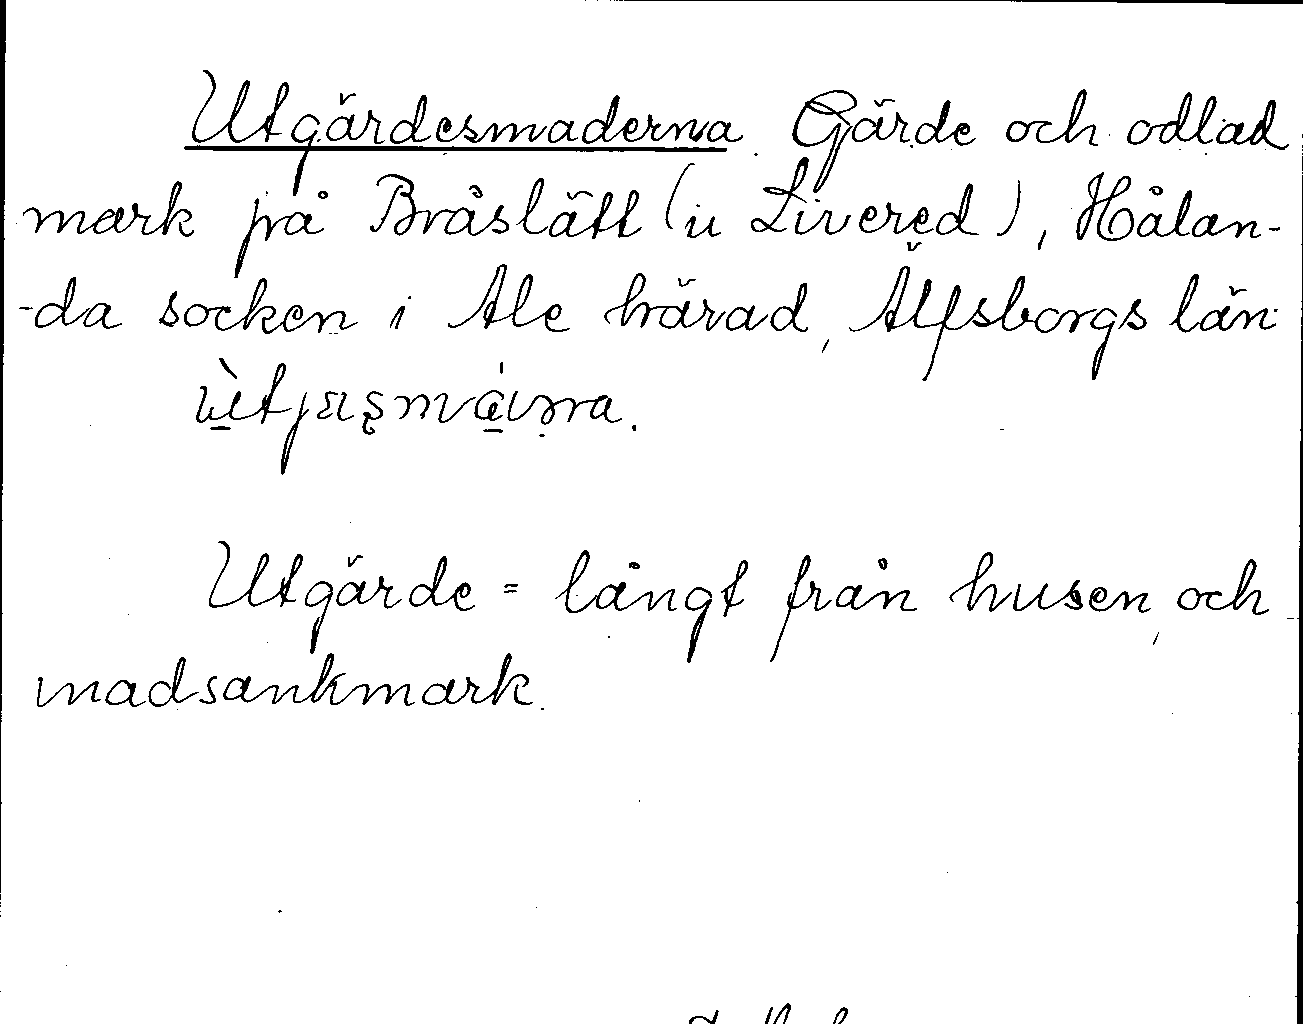 Utgärdesmaderna. Gärde och odlad
mark på Bråslätt (u Livered), Hålan-
-da socken i Ale härad, Älfsborgs län
Utgärde = långt från husen, och
madsankmark.